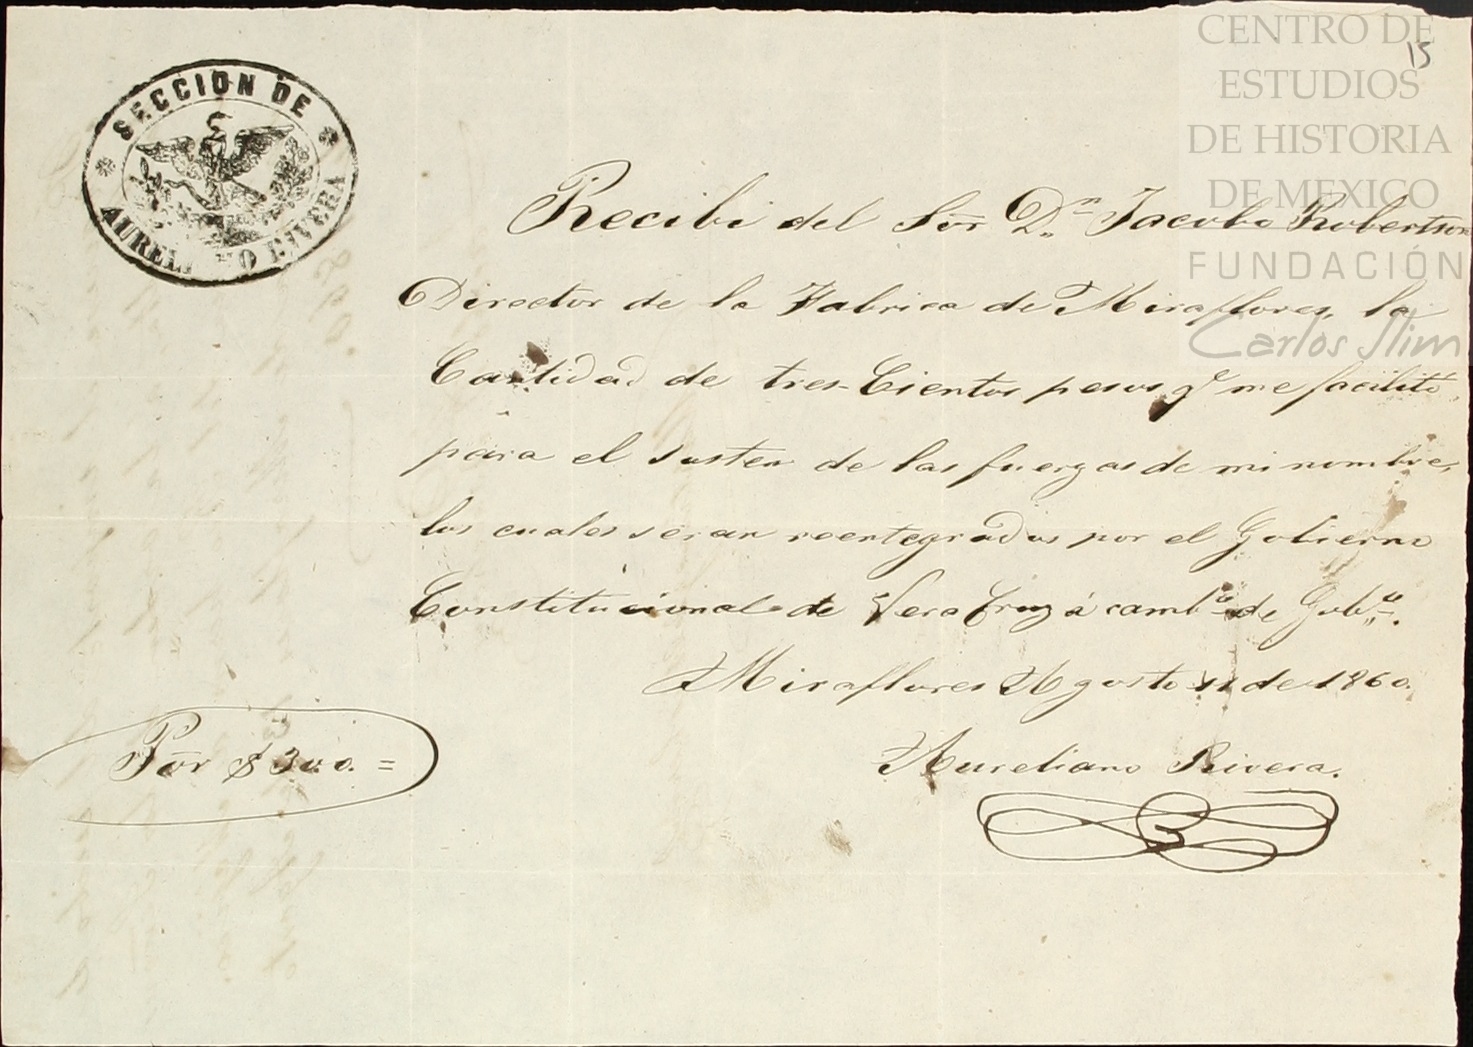 CENTRO DE
ESTUDIOS
DE HISTORIA
DE MEXICO
FUNDACIÓN
Carlos Slim
15
SECCION DE
AURELIANO RIVERA
Recibi del Sōr Dn. Jacobo Robertson
Director de la Fabrica de Miraflores, la
Cantidad de tres-Cientos pesos qe me facilitó,
para el susten de las fuerzas de mi nombre,
los cuales seran reentegrados por el Gobierno
Constitucional de Vera Cruz á cambo de Gobo.
Miraflores Agosto 11 de 1860.
Por $300. =
Aureliano Rivera.